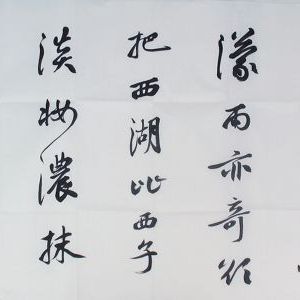 濛雨亦奇欲
把西湖比西子
淡妝濃抹